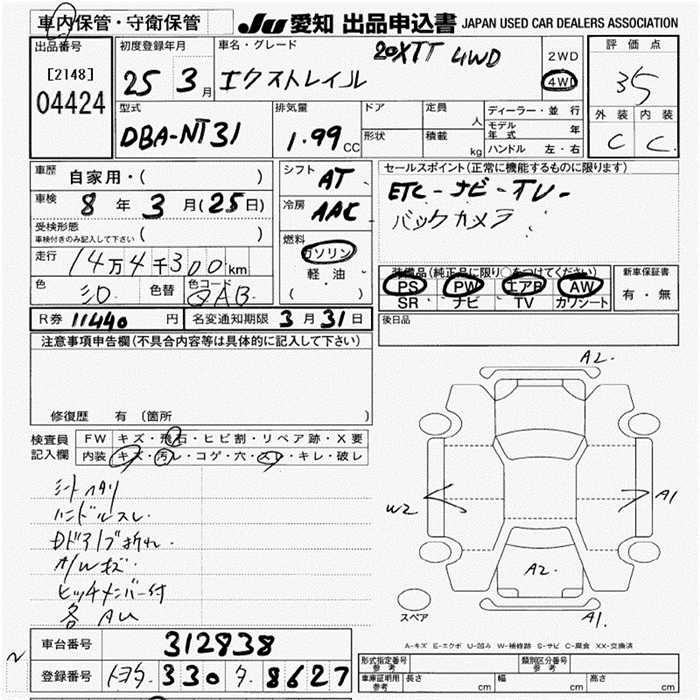 車内保管・守衛保管 Ju 愛知 出品申込書 JAPAN USED CAR DEALERS ASSOCIATION
出品番号
[2148]
04424
初度登録年月
25 3月
車名・グレード
20XTT 4WD
エクストレイル
2WD
4WD
評価点
35
外装 内装
C C
型式
DBA-NT31
排気量
1.99 CC
ドア
形状
定員
人
積載
kg
ディーラー・並行
モデル年式 年
ハンドル 左・右
車歴 自家用・( )
車検 8年3月(25日)
受検形態
車検付きのみ記入して下さい ( )
走行 14万4千300km
色 シロ 色替 色コード QAB
シフト AT
冷房 AAC
燃料
ガソリン
・
軽・油
( )
セールスポイント(正常に機能するものに限ります)
ETC-ナビ-TV-
バックカメラ
装備品(純正品に限り○をつけてください)
PS PW エアB AW
SR ナビ TV カワシート
新車保証書
有・無
R券 11440円 名変通知期限 3月31日
後日品
注意事項申告欄(不具合内容等は具体的に記入して下さい)
修復歴 有(箇所
検査員記入欄
FW キズ・飛石・ヒビ割・リペア跡・X要
内装 キズ・汚レ・コゲ・穴・スレ・キレ・破レ
シートヘタリ
ハンドルスレ
Dドアノブ折れ
A/Wキズ
ヒッチメンバー付
各AU
A2.
W2
A1
A2.
A1.
スペア
A-キズ E-エクボ U-凹み W-補修跡 S-サビ C-腐食 XX-交換済
車台番号 312838
登録番号 トヨタ 330 タ 8627
形式指定番号 参考 類別区分番号 参考
車庫証明用 参考 長さ cm 幅 cm 高さ cm